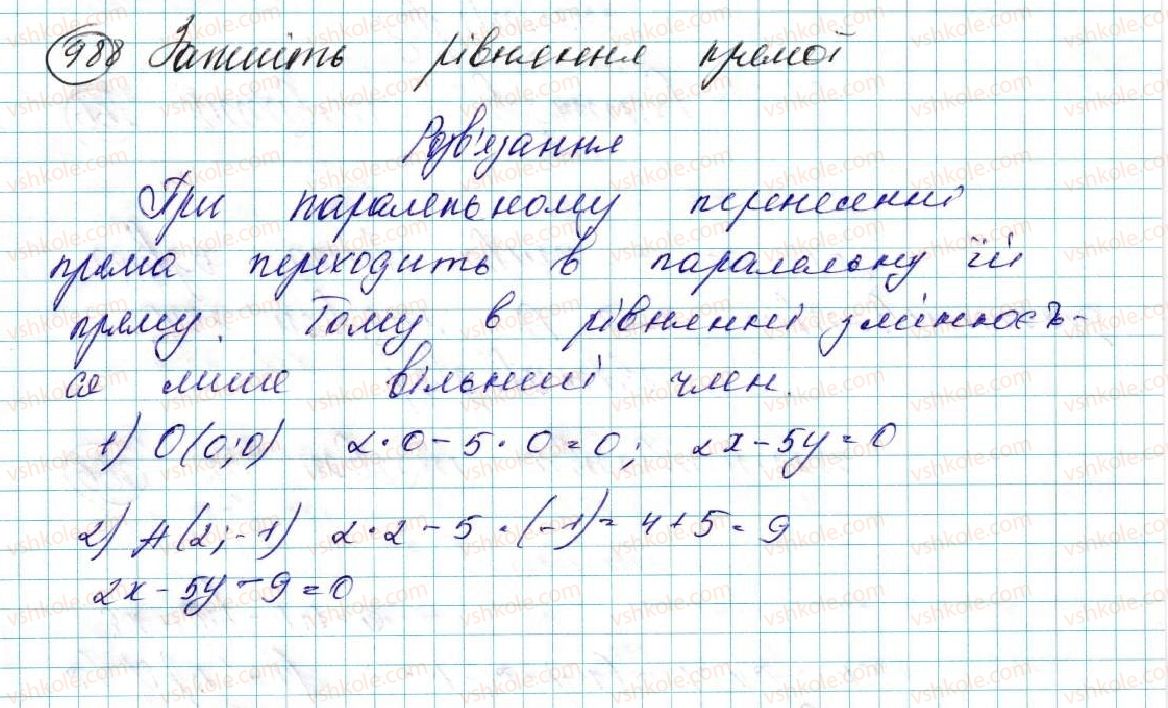 988 Запишіть рівняння прямої
Розв'язання
При паралельному перенесенні
пряма переходить в паралельну їй
пряму. Тому в рівнянні змінюєть-
ся лише вільний член.
1) O(0;0) 2·0-5·0=0; 2x-5y=0
2) A(2;-1) 2·2-5·(-1)=4+5=9
2x-5y-9=0